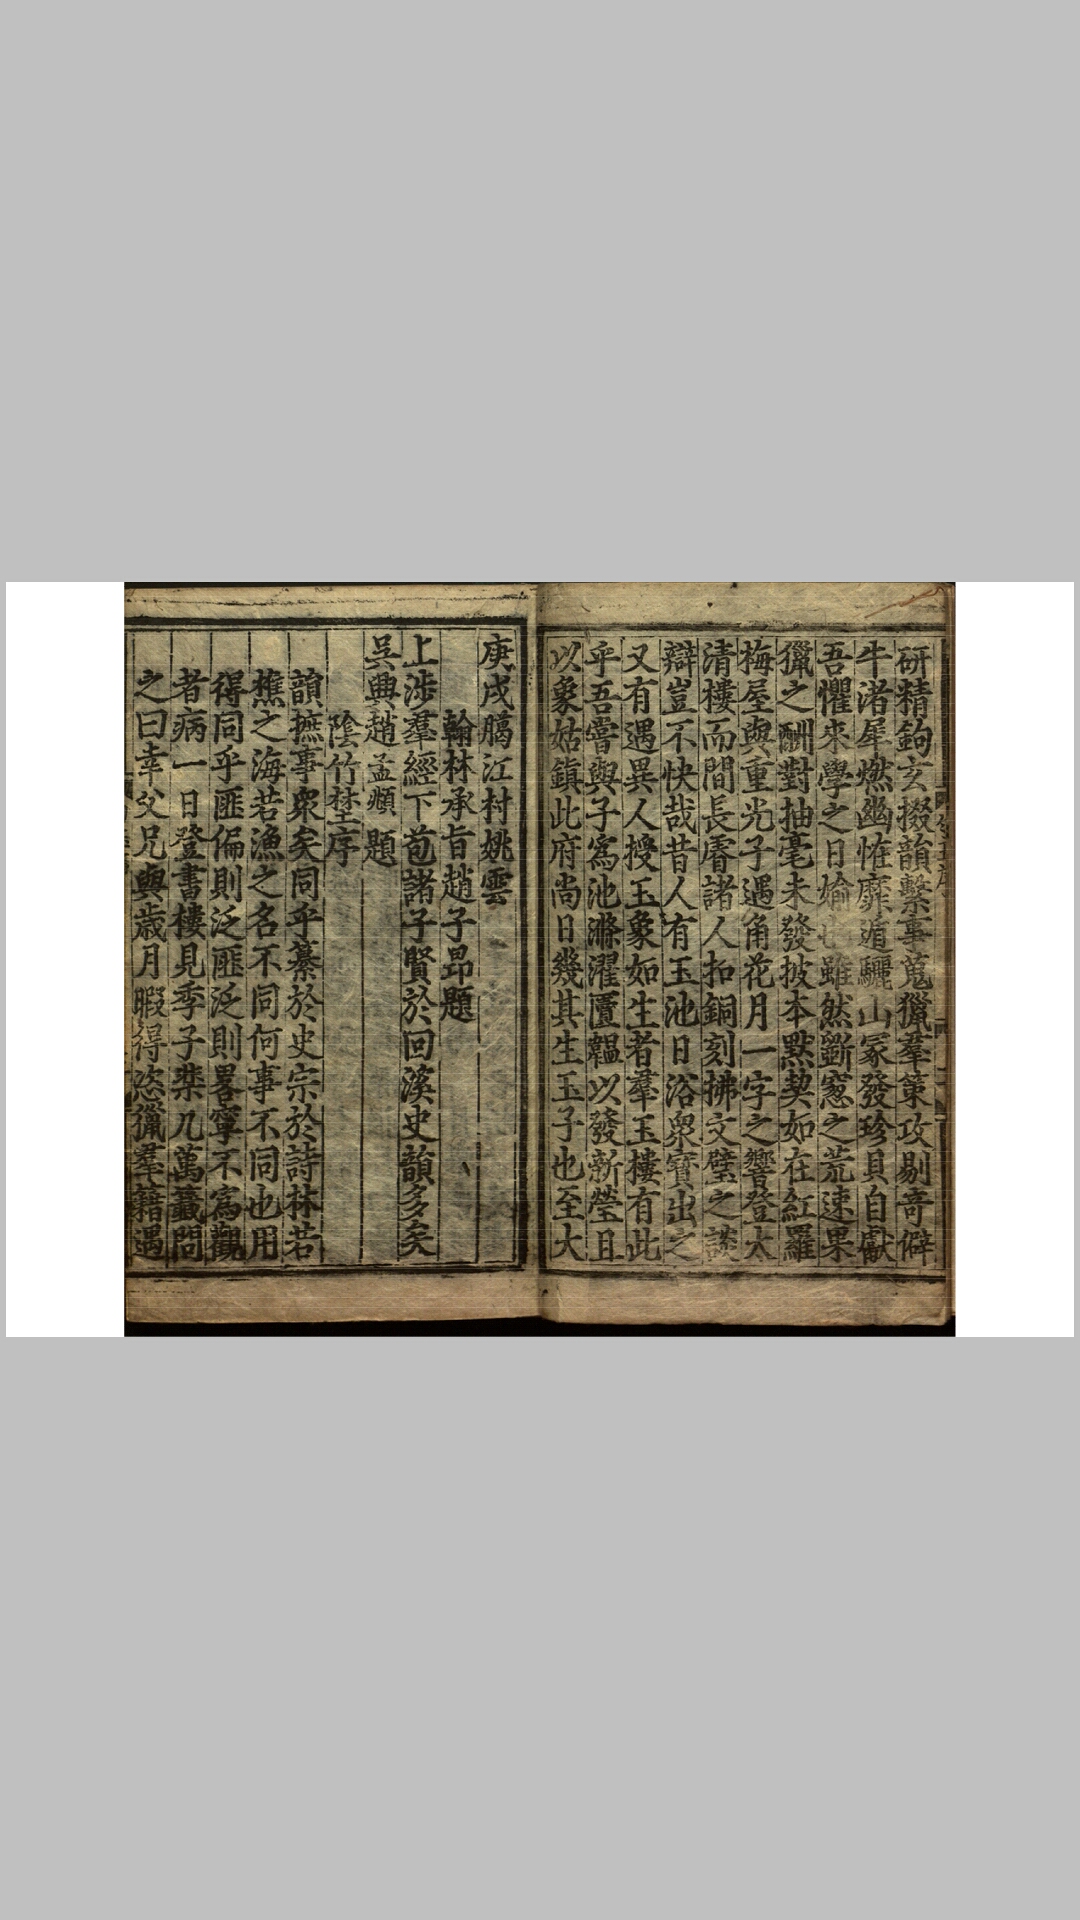 研精鉤玄掇韻繫事蒐獵羣策攻剔奇僻
牛渚犀燃幽恠靡遁驪山冢發珍貝自獻
吾懼來學之日媮也雖然斵窻之荒速果
獵之酬對抽毫未發披本默契如在紅羅
梅屋與重光子遇角花月一字之響登太
清樓而間長睿諸人扣銅刻拂文璧之談
辯豈不快哉昔人有玉池日浴衆寶出之
又有遇異人授玉象如生者羣玉樓有此
乎吾嘗與子爲池滌濯匵韞以發新瑩且
以象姑鎮此府尚日幾其生玉子也至大
庚戌腸江村姚雲
翰林承旨趙子昂題
上涉羣經下苞諸子賢於回溪史韻多矣
吳興趙孟頫題
陰竹埜序
韻摭事衆矣同乎纂於史宗於詩林若
樵之海若漁之名不同何事不同也用
得同乎匪偏則泛匪泛則畧寧不爲觀
者病一日登書樓見季子棐几萬籤問
之曰幸父兄與歲月暇得恣獵羣籍遇